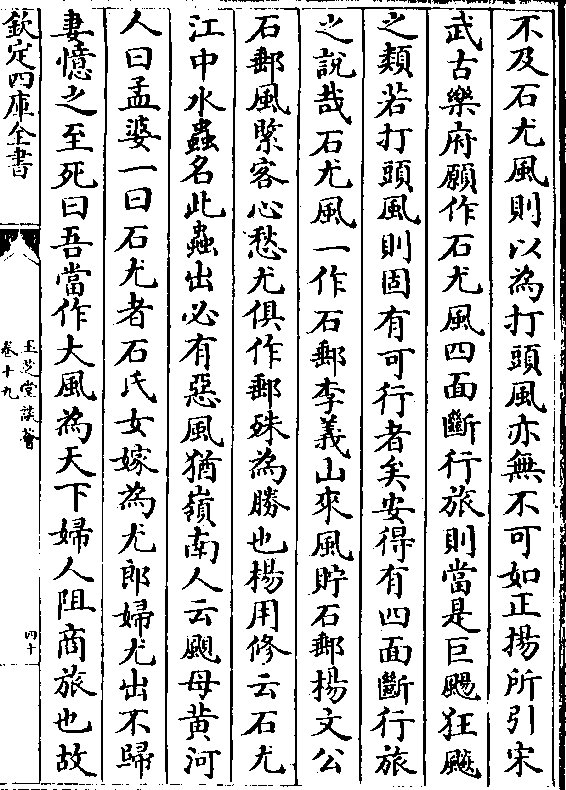 不及石尤風則以為打頭風亦無不可如正揚所引宋
武古樂府願作石尤風四面斷行旅則當是巨颺狂飈
之類若打頭風則固有可行者矣安得有四面斷行旅
之說哉石尤風一作石郵李義山來風貯石郵楊文公
石郵風緊客心愁尤俱作郵殊為勝也楊用修云石尤
江中水蟲名此蟲出必有惡風猶嶺南人云颶母黄河
人曰孟婆一曰石尤者石氏女嫁為尤郎婦尤出不歸
妻憶之至死曰吾當作大風為天下婦人阻商旅也故
欽定四庫全書
玉芝堂談薈
卷十九
四十